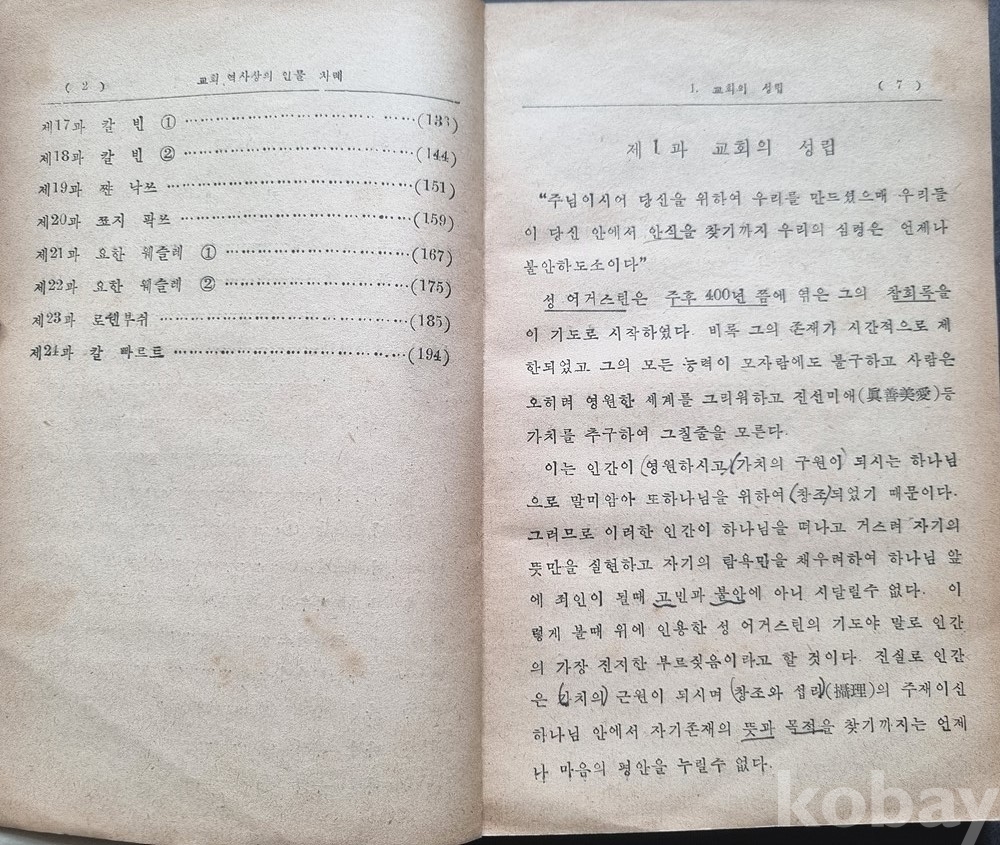 ( 2 ) 교회 역사상의 인물 차례
제17과 칼 빈 ① (136)
제18과 칼 빈 ② (144)
제19과 쨘 낙쓰 (151)
제20과 쪼지 팍쓰 (159)
제21과 요한 웨슬레 ① (167)
제22과 요한 웨슬레 ② (175)
제23과 로쉔부쉬 (185)
제24과 칼 빠르트 (194)
1. 교회의 성립 ( 7 )
제 1 과 교회의 성립
“주님이시어 당신을 위하여 우리를 만드셨으매 우리들
이 당신 안에서 안식을 찾기까지 우리의 심령은 언제나
불안하도소이다”
성 어거스틴은 주후 400년 쯤에 엮은 그의 참회록을
이 기도로 시작하였다. 비록 그의 존재가 시간적으로 제
한되었고 그의 모든 능력이 모자람에도 불구하고 사람은
오히려 영원한 세계를 그리워하고 진선미애(眞善美愛)등
가치를 추구하여 그칠줄을 모른다.
이는 인간이 (영원하시고)(가치의 구원이) 되시는 하나님
으로 말미암아 또하나님을 위하여 (창조)되었기 때문이다.
그러므로 이러한 인간이 하나님을 떠나고 거스려 자기의
뜻만을 실현하고 자기의 탐욕만을 채우려하여 하나님 앞
에 죄인이 될때 고민과 불안에 아니 시달릴수 없다. 이
렇게 볼때 위에 인용한 성 어거스틴의 기도야 말로 인간
의 가장 진지한 부르짖음이라고 할 것이다. 진실로 인간
은 (가치의) 근원이 되시며 (창조와 섭리)(攝理)의 주재이신
하나님 안에서 자기존재의 뜻과 목적을 찾기까지는 언제
나 마음의 평안을 누릴수 없다.
kobay